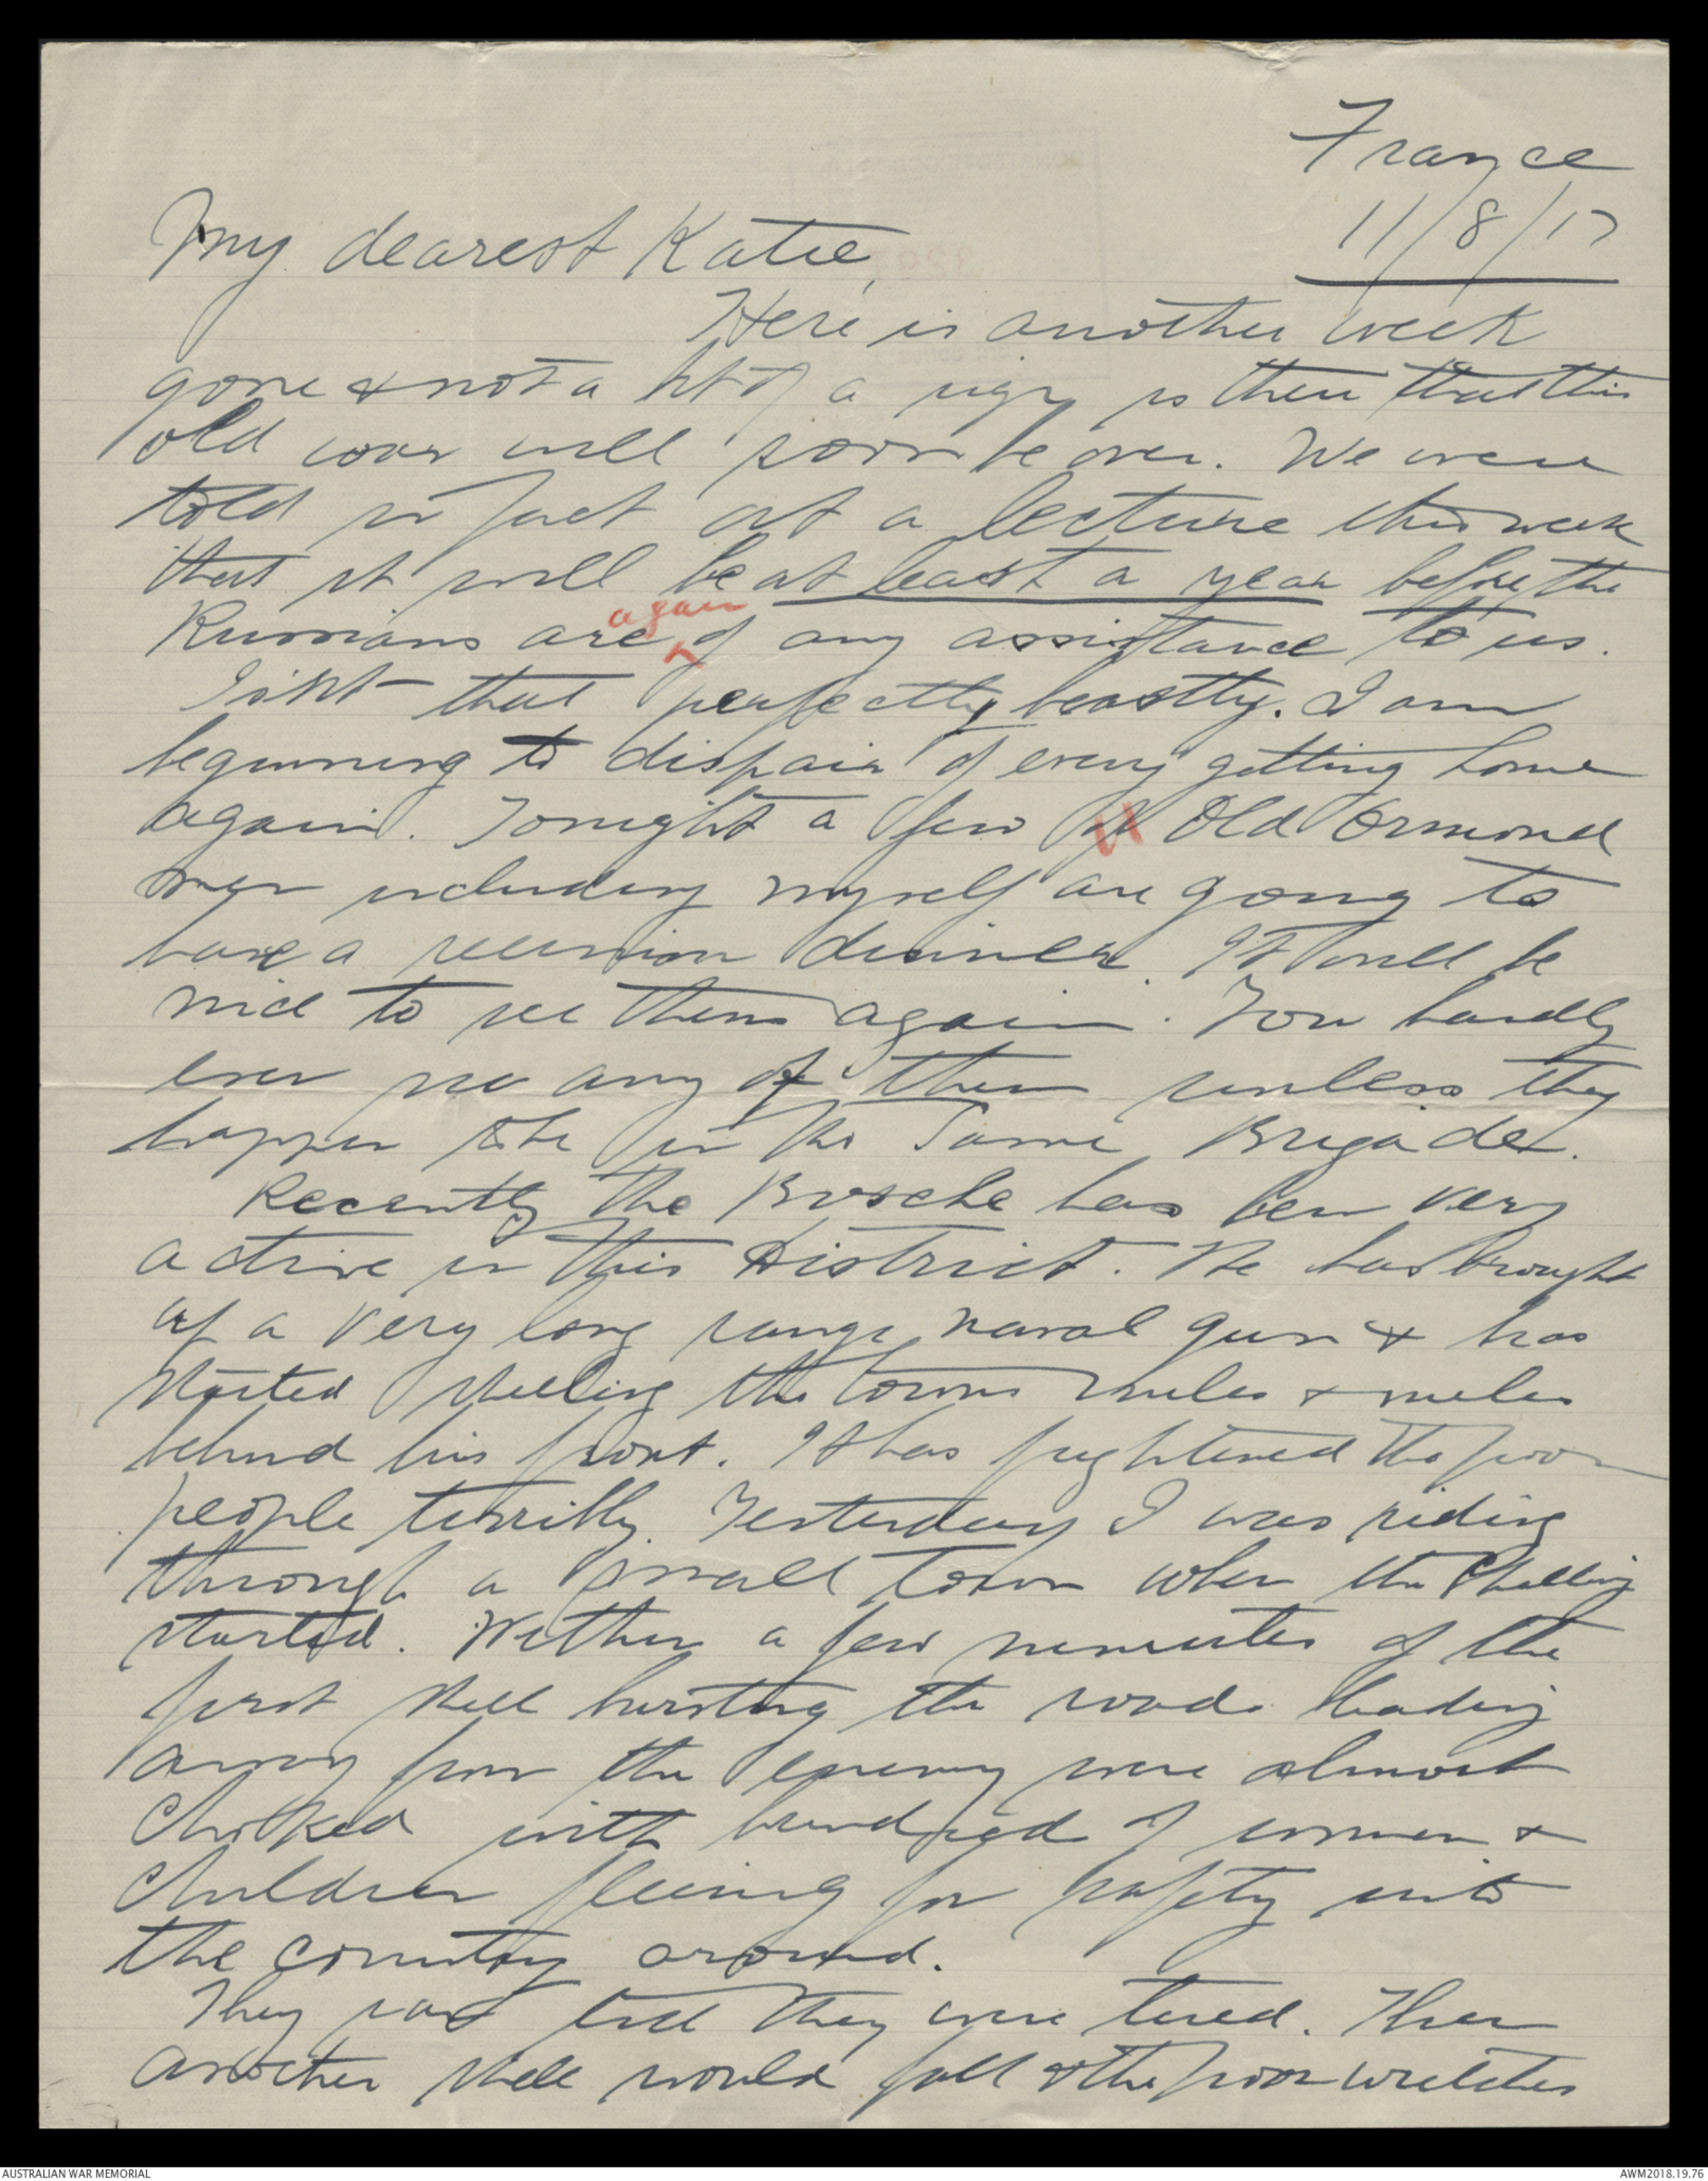 France
11/8/17
My dearest Katie,
Here is another week
gone & not a bit of a sign is there that this
old war will soon be over. We were
told in fact at a lecture this week
that it will be at least a year before the
again
Russians are ^ of any assistance to us.
Isn't that perfectly beastly. I am
beginning to dispair of every getting home
again. Tonight a few of Old Ormond
men including myself are going to
have a reunion dinner. It will be
nice to see them again. You hardly
ever see any of them unless they
happen to be in the same Brigade.
Recently the Bosche has been very
active in this District. He has brought
up a very long range naval gun & has
started shelling the towns miles & miles
behind his front. It has frightened the poor
people terribly. Yesterday I was riding
through a small town when the shelling
started. Within a few minutes of the
first shell bursting the roads leading
away from the enemy were almost
choked with hundreds of women &
children fleeing for safety into
the country around.
They ran till they were tired. Then
another shell would fall & the poor wretches
AUSTRALIAN WAR MEMORIAL
AWM2018.19.76